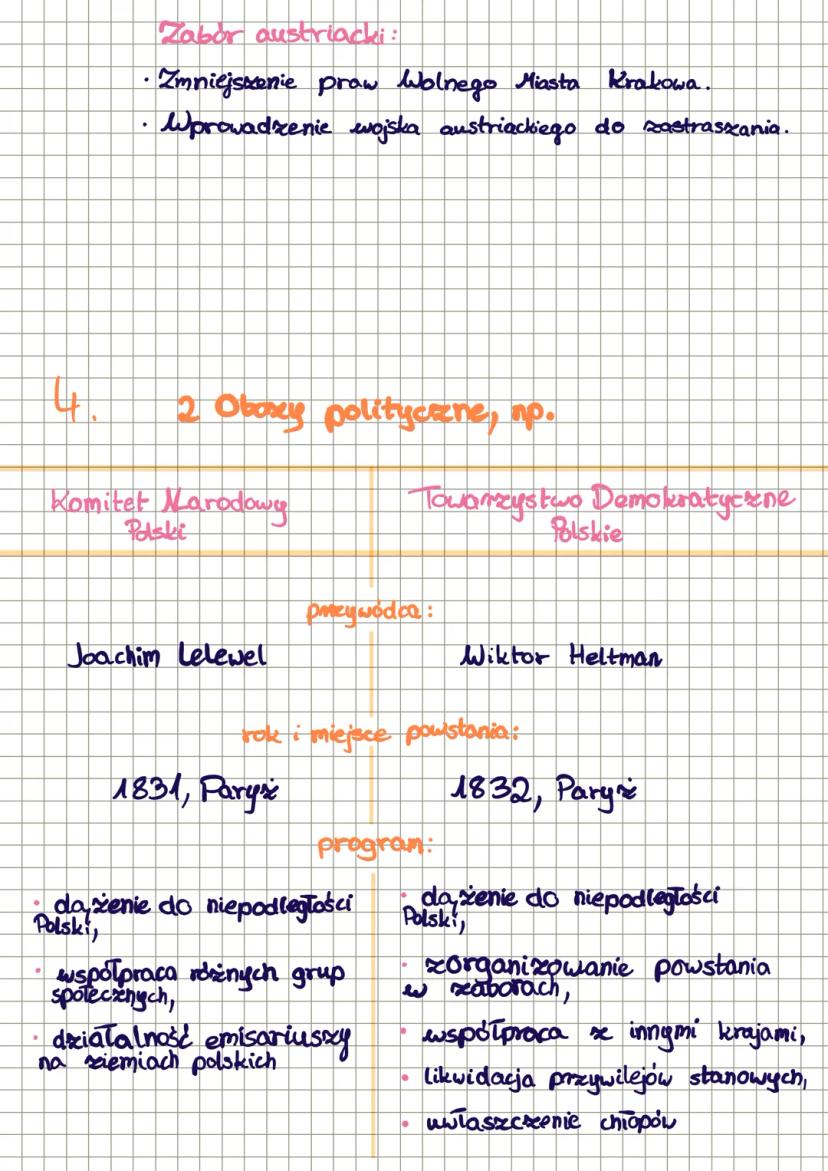 Zabór austriacki:
· Zmniejszenie praw Wolnego Miasta Krakowa.
· Wprowadzenie wojska austriackiego do zastraszania.
4. 2 Obozy polityczne, np.
Komitet Narodowy
Polski
Towarzystwo Demokratyczne
Polskie
przywódca:
Joachim Lelewel
Wiktor Heltman
rok i miejsce powstania:
1831, Paryż
1832, Paryż
program:
· dążenie do niepodległości
Polski,
· współpraca różnych grup
społecznych,
· działalność emisariuszy
na ziemiach polskich
· dążenie do niepodległości
Polski,
· zorganizowanie powstania
w zaborach,
· współpraca z innymi krajami,
· likwidacja przywilejów stanowych,
· uwłaszczenie chłopów